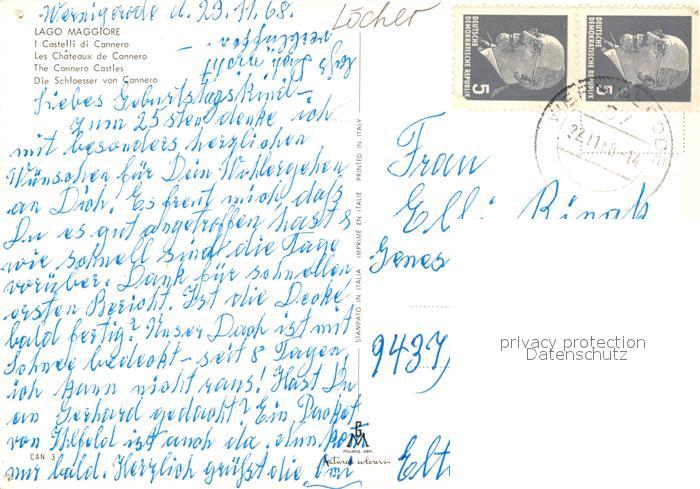 Wernigerode d. 23.11.68.
Löcher
LAGO MAGGIORE
I Castelli di Cannero
Les Châteaux de Cannero
The Cannero Castles
Die Schloesser von Cannero
Liebes Geburtstagskind –
Zum 25 sten denke ich
mit besonders herzlichen
Wünschen für Dein Wohlergehen
an Dich. Es freut mich daß
Du es gut angetroffen hast &
wie schnell sind die Tage
vorüber. Dank für schnellen
ersten Bericht. Ist die Decke
bald fertig? Unser Dach ist mit
Schnee bedeckt – seit 8 Tagen,
ich kann nicht raus! Hast Du
an Gerhard gedacht? Ein Paket
von Ihlfeld ist auch da, dum
mir bald. Herzlich grüßt die
CAN 3
MILANO DEP.
Natural colours
STAMPATO IN ITALIA IMPRIMÉ EN ITALIE PRINTED IN ITALY
DEUTSCHE
DEMOKRATISCHE REPUBLIK
5
DEUTSCHE
DEMOKRATISCHE REPUBLIK
5
Frau
Elli
Genes
9437
Elt
privacy protection
Datenschutz